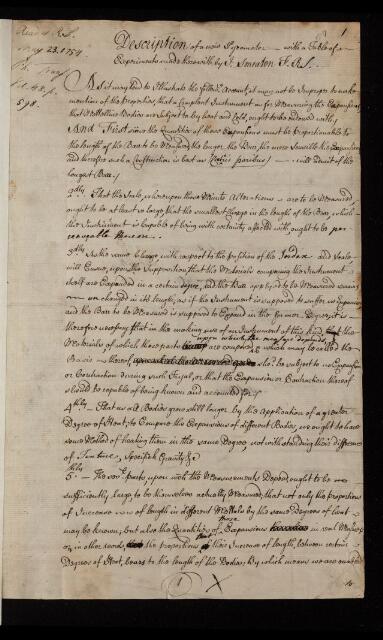 Read at R.S.
May 23. 1754
Ph. Trans.
vol. 48. p.
598.
1
Description of a new Pyrometer with a Table of
Experiments made therewith by J. Smeaton F.R.S.
As it may tend to Illustrate the follow.g Account, it may not be Improper to make
mention of the Properties, that a Compleat Instrument for Measuring the Expansions
that Mettalline Bodies are Subject to by heat and Cold, ought to be endowed with;
And First since the Quantities of those Expansions must be Proportionable to
the length of the Bars to be Measured, the longer the Bar, the more Sensible the Expansion,
and therefore such a Construction is best as Cæteris paribus will admit of the
longest Bar.
2dly That the Scale, whereupon these Minute Alterations are to be Measured,
ought to be at least so large, that the smallest Change in the length of the Bar, which
the Instrument is capable of being with certainty affected with ought to be per=
ceivable thereon.
3dly As the same Change with respect to the position of the Index and Scale
will Ensue, upon the Supposition that the Materials composing the Instrument
shall are Expanded in a certain degree, and the Bar applyed to be Measured remains
un changed in its length; as if the Instrument is supposed to suffer no Expansion
and the Bar to be Measured is supposed to Expand in the same Degree; it is
therefore necessary that in the making use of an Instrument of this kind, that the
upon which the measures depend
Materials, of which those parts are composed, which may be called the
Basis thereof, sho.d be subject to no Expansion
or Contraction during such Tryal, or that the Expansion or Contraction thereof
should be capable of being known and accounted for.
4thly That as all Bodies grow still longer by the Application of a greater
Degree of Heat; to Compare the Expansions of different Bodies, we ought to have
some Method of heating them in the same Degree, not with standing their difference
of Texture, Specifick Gravity &c
5thly The parts upon wch the Measurements Depend ought to be
sufficiently large to be themselves actually Measured, that not only the proportions
of Increase of length in different Mettals by the same Degrees of heat
may be known; but also the Quantities of those Expansions in real Measure
or in other words, that the proportions their Increase of length, between certain
Degrees of Heat, bears to the length of the Bodies; By which means we are enabled
to